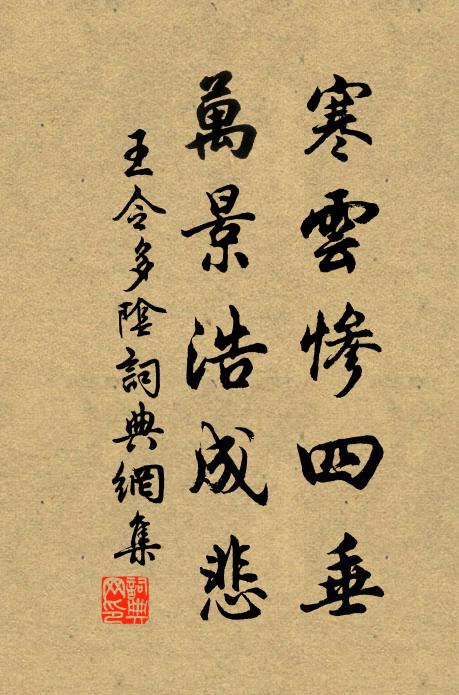 寒雲慘四垂
萬景浩成悲
王令多陰詞典網集
詞典网印